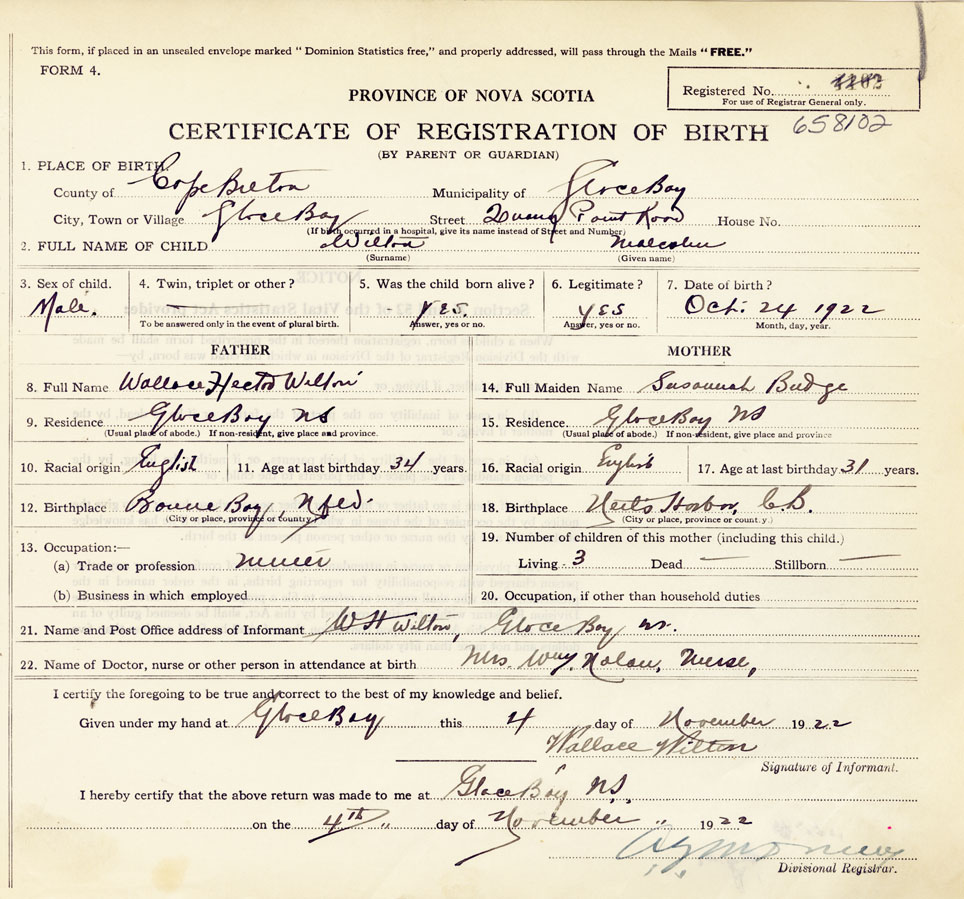 This form, if placed in an unsealed envelope marked " Dominion Statistics free," and properly addressed, will pass through the Mails "FREE."
FORM 4.
Registered No.
For use of Registrar General only.
PROVINCE OF NOVA SCOTIA
658102
CERTIFICATE OF REGISTRATION OF BIRTH
(BY PARENT OR GUARDIAN)
1. PLACE OF BIRTH.
County of Cape Breton Municipality of Glace Bay
City, Town or Village Glace Bay Street Point Road House No.
(If birth occurred in a hospital, give its name instead of Street and Number)
2. FULL NAME OF CHILD Wilton Malcolm
(Surname) (Given name)
3. Sex of child. 4. Twin, triplet or other? 5. Was the child born alive? 6. Legitimate? 7. Date of birth?
Male. — Yes. Yes Oct. 24 1922
To be answered only in the event of plural birth. Answer, yes or no. Answer, yes or no. Month, day, year.
FATHER MOTHER
8. Full Name Wallace Hector Wilton 14. Full Maiden Name Susannah Budge
9. Residence Glace Bay NS 15. Residence. Glace Bay NS
(Usual place of abode.) If non-resident, give place and province. (Usual place of abode.) If non-resident, give place and province
10. Racial origin English 11. Age at last birthday 34 years. 16. Racial origin English 17. Age at last birthday 31 years.
12. Birthplace Bonne Bay, Nfld. 18. Birthplace Neil's Harbor, C.B.
(City or place, province or country.) (City or place, province or county.)
13. Occupation:— 19. Number of children of this mother (including this child.)
(a) Trade or profession miner Living 3 Dead — Stillborn —
(b) Business in which employed 20. Occupation, if other than household duties
21. Name and Post Office address of Informant W H Wilton, Glace Bay NS.
22. Name of Doctor, nurse or other person in attendance at birth Mrs. Wm. Nolan, Nurse,
I certify the foregoing to be true and correct to the best of my knowledge and belief.
Given under my hand at Glace Bay this 4 day of November 1922
Wallace Wilton
Signature of Informant.
I hereby certify that the above return was made to me at Glace Bay NS.
on the 4th " day of November " 1922
Divisional Registrar.